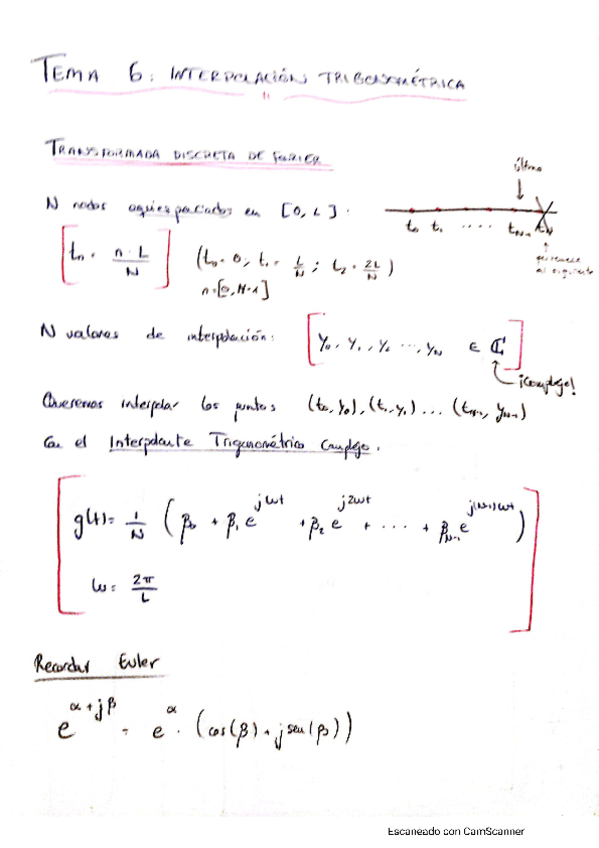 TEMA 6: INTERPOLACIÓN TRIGONOMÉTRICA
TRANSFORMADA DISCRETA DE FORIER
último
N nodos equiespaciados en [0, L].
t₀ t₁ .... t_{N-1} t_N
pertenece al siguiente
[t_n = n·L/N] (t₀ = 0, t₁ = L/N ; t₂ = 2L/N)
n=[0, N-1]
N valores de interpolación: [y₀, y₁, y₂ ..., y_N ∈ ℂ]
¡Complejo!
Queremos interpolar los puntos (t₀, y₀), (t₁, y₁) ... (t_{N-1}, y_{N-1})
Con el Interpolante Trigonométrico Complejo.
g(t) = 1/N (β₀ + β₁ e^{jωt} + β₂ e^{j2ωt} + ... + β_{N-1} e^{j(N-1)ωt})
ω = 2π/L
Recordar Euler
e^{α+jβ} = e^α · (cos(β) + j sen(β))
Escaneado con CamScanner